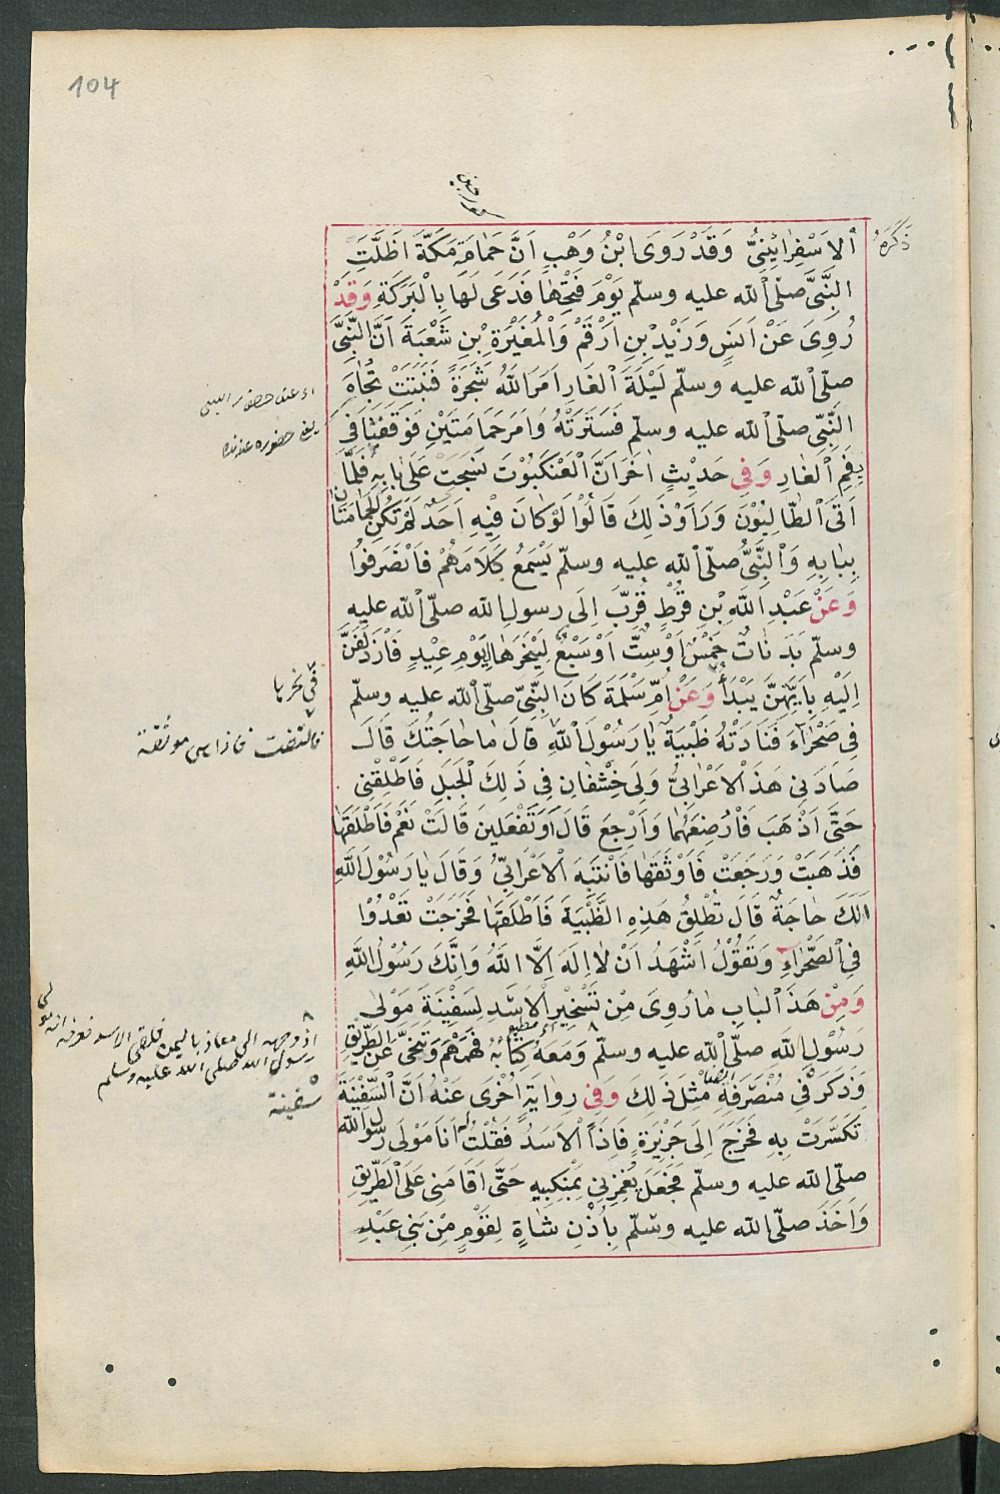 104
ذَكَرَهُ
اَلاَسْفِرٰائِينِىُّ وَقَدْ رَوَى ابْنُ وَهْبٍ اَنَّ حَمٰامَةَ مَكَّةَ اَظَلَّتِ
النَّبِىَّ صلّى اللّه عليه وسلّم يَوْمَ فَتْحِهٰا فَدَعَى لَهٰا بِالْبَرَكَةِ وَقَدْ
رُوِىَ عَنْ اَنَسٍ وَزَيْدِ بْنِ اَرْقَمْ وَالْمُغَيْرَةِ بْنِ شَعْبَةَ اَنَّ النَّبِىَّ
صلّى اللّه عليه وسلّم لَيْلَةَ الْغَارِ اَمَرَ اللّٰهُ شَجَرَةً فَنَبَتَتْ تُجٰاهَ
النَّبِىِّ صلّى اللّه عليه وسلّم فَسَتَرَتْهُ وَاَمَرَ حَمَامَتَيْنِ فَوَقَفَتٰا فِى
بِفَمِ الْغٰارِ وَفِى حَدِيْثٍ اٰخَرَ اَنَّ الْعَنْكَبُوْتَ نَسَجَتْ عَلَى بٰابِهِ فَلَمَّا
اَتَى الطّٰالِبُوْنَ وَرَاَوْ ذٰلِكَ قَالُوْا لَوْ كَانَ فِيْهِ اَحَدٌ لَمْ تَكُنِ الْحَمٰامَتَانِ
بِبٰابِهِ وَالنَّبِىُّ صلّى اللّه عليه وسلّم يَسْمَعُ كَلَامَهُمْ فَانْصَرَفُوْا
وَعَنْ عَبْدِ اللّٰهِ بْنِ قُرْطٍ قُرِّبَ اِلَى رسولِ اللّه صلّى اللّه عليه
وسلّم بَدَنٰاتٌ خَمْسٌ اَوْ سِتٌّ اَوْ سَبْعٌ لِيَنْحَرَهٰا يَوْمَ عِيْدٍ فَازْدَلَفْنَ
اِلَيْهِ بِاَيِّهِنَّ يَبْدَأُ وَعَنْ اُمِّ سَلَمَةَ كَانَ النَّبِىّ صلّى اللّه عليه وسلّم
فِى صَحْرَآءَ فَنَادَتْهُ ظَبْيَةٌ يٰا رَسُوْلَ اللّٰهِ قَالَ مٰا حٰاجَتُكَ قَالَ
صَادَنِى هَذَ الْاَعْرٰابِىُّ وَلِى خِشْفَانِ فِى ذٰلِكَ الْجَبَلِ فَاَطْلِقْنِى
حَتَّى اَذْهَبَ فَاُرْضِعَهُمَا وَاَرْجِعَ قَالَ اَوَتَفْعَلِينَ قَالَتْ نَعَمْ فَاَطْلَقَهٰا
فَذَهَبَتْ وَرَجَعَتْ فَاَوْثَقَهٰا فَانْتَبَهَ الْاَعْرَابِىُّ وَقَالَ يٰا رَسُوْلَ اللّٰهِ
اَلَكَ حٰاجَةٌ قَالَ تُطْلِقُ هَذِهِ الظَّبْيَةَ فَاَطْلَقَهٰا فَخَرَجَتْ تَعْدُوْا
فِى الصَّحْرَاءِ وَتَقُوْلُ اَشْهَدُ اَنْ لٰا اِلَهَ اِلَّا اللّٰهُ وَاَنَّكَ رَسُوْلُ اللّٰهِ
وَمِنْ هَذَ الْبٰابِ مٰا رُوِىَ مِنْ تَسْخِيْرِ الْاَسَدِ لِسَفِيْنَةَ مَوْلٰى
رَسُوْلِ اللّٰه صلّى اللّه عليه وسلّم وَمَعَهُ كِتٰابُهُ فَهَمْهَمَ وَتَنَحَّى عَنِ الطَّرِيْقِ
وَذَكَرَ فِى مُنْصَرَفِهِ اَيْضًا مِثْلَ ذٰلِكَ وَفِى رِوٰايَةٍ اُخْرَى عَنْهُ اَنَّ السَّفِيْنَةَ
تَكَسَّرَتْ بِهِ فَخَرَجَ اِلَى جَزِيْرَةٍ فَاِذَا الْاَسَدُ فَقُلْتُ لَهُ اَنَا مَوْلَى رَسُولِ اللّه
صلّى اللّه عليه وسلّم فَجَعَلَ يَغْمِزُنِى بِمَنْكِبِهِ حَتَّى اَقَامَنِى عَلَى الطَّرِيْقِ
وَاَخَذَ صلّى اللّه عليه وسلّم بِاُذْنِ شٰاةٍ لِقَوْمٍ مِنْ بَنِى عَبْدِ
فى نحرها
فالتفت فاذا هى موثقة
اذ وجهه الى معاذ باليمن فلقى الاسد فعرفه انه مولى
رسول اللّه صلى اللّه عليه وسلم
سفينة